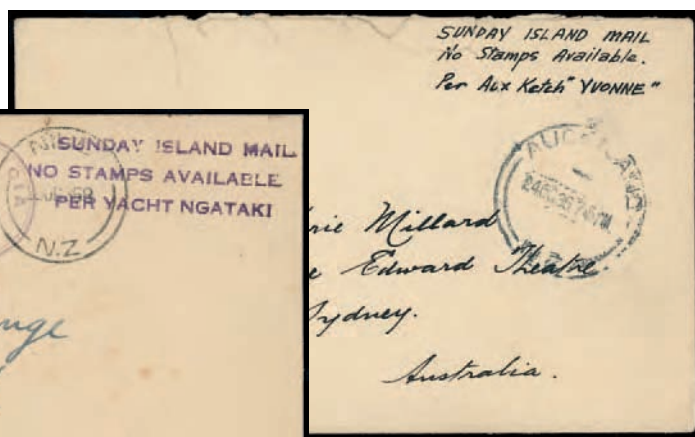 SUNDAY ISLAND MAIL
No Stamps Available.
Per Aux Ketch "YVONNE"
AUCKLAND
Millard
Edward Theatre
Sydney.
Australia.
SUNDAY ISLAND MAIL
NO STAMPS AVAILABLE
PER YACHT NGATAKI
N.Z